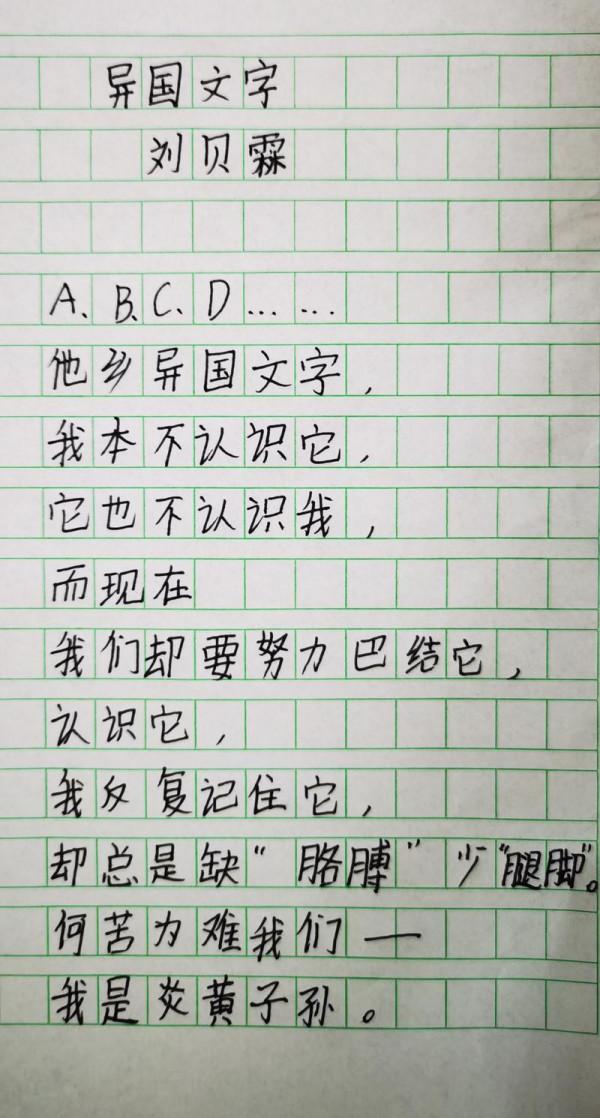 异国文字
刘贝霖
A、B、C、D……
他乡异国文字，
我本不认识它，
它也不认识我，
而现在
我们却要努力巴结它，
认识它，
我反复记住它，
却总是缺“胳膊”少“腿脚”。
何苦为难我们——
我是炎黄子孙。